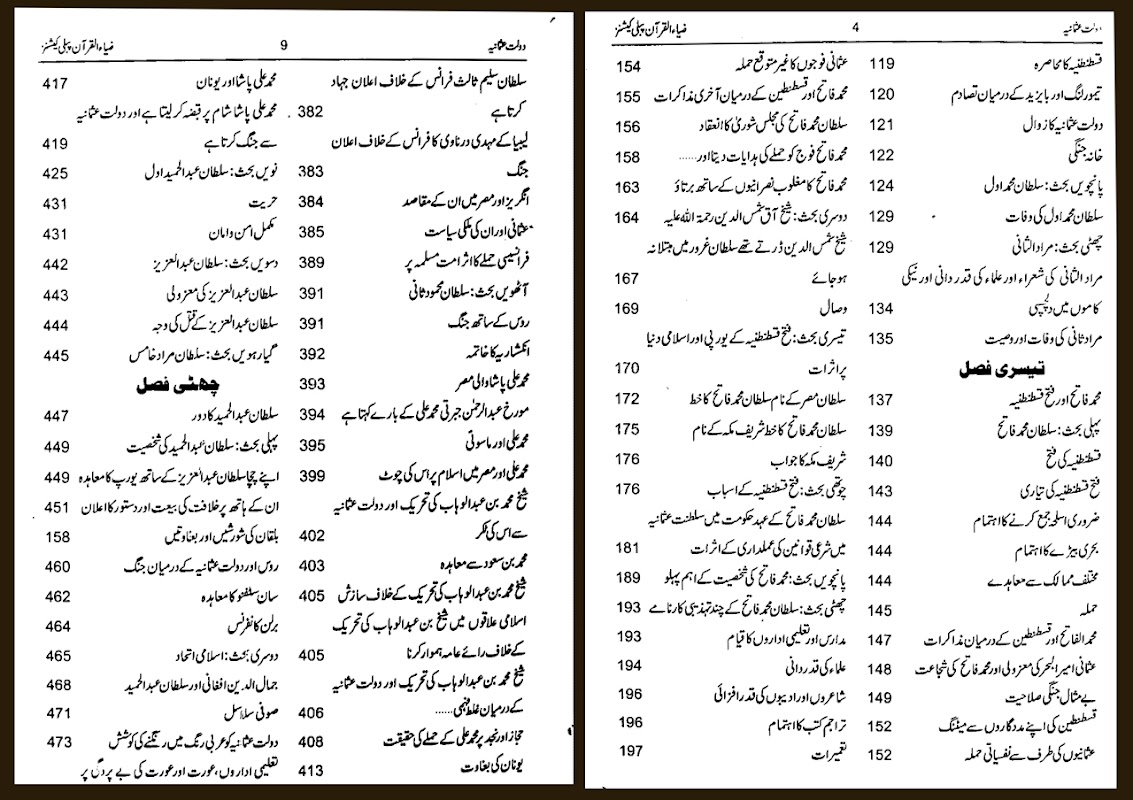 دولت عثمانیہ
4
ضیاء القرآن پبلی کیشنز
قسطنطنیہ کا محاصرہ 119
تیمورلنگ اور بایزید کے درمیان تصادم 120
دولت عثمانیہ کا زوال 121
خانہ جنگی 122
پانچویں بحث: سلطان محمد اول 124
سلطان محمد اول کی وفات 129
چھٹی بحث: مراد الثانی 129
مراد الثانی کی شعراء اور علماء کی قدر دانی اور نیکی
کاموں میں دلچسپی 134
مراد ثانی کی وفات اور وصیت 135
تیسری فصل
محمد فاتح اور فتح قسطنطنیہ 137
پہلی بحث: سلطان محمد فاتح 139
قسطنطنیہ کی فتح 140
فتح قسطنطنیہ کی تیاری 143
ضروری اسلحہ جمع کرنے کا اہتمام 144
بحری بیڑے کا اہتمام 144
مختلف ممالک سے معاہدے 144
حملہ 145
محمد الفاتح اور قسطنطین کے درمیان مذاکرات 147
عثمانی امیر البحر کی معزولی اور محمد فاتح کی شجاعت 148
بے مثال جنگی صلاحیت 149
قسطنطین کی اپنے مددگاروں سے میٹنگ 152
عثمانیوں کی طرف سے نفسیاتی حملہ 152
عثمانی فوجوں کا غیر متوقع حملہ 154
محمد فاتح اور قسطنطین کے درمیان آخری مذاکرات 155
سلطان محمد فاتح کی مجلس شوریٰ کا انعقاد 156
محمد فاتح فوج کو حملے کی ہدایات دیتا اور...... 158
محمد فاتح کا مغلوب نصرانیوں کے ساتھ برتاؤ 163
دوسری بحث: شیخ آق شمس الدین رحمۃ اللہ علیہ 164
شیخ شمس الدین ڈرتے تھے سلطان غرور میں مبتلا نہ
ہو جائے 167
وصال 169
تیسری بحث: فتح قسطنطنیہ کے یورپی اور اسلامی دنیا
پر اثرات 170
سلطان مصر کے نام سلطان محمد فاتح کا خط 172
سلطان محمد فاتح کا خط شریف مکہ کے نام 175
شریف مکہ کا جواب 176
چوتھی بحث: فتح قسطنطنیہ کے اسباب 176
سلطان محمد فاتح کے عہد حکومت میں سلطنت عثمانیہ
میں شرعی قوانین کی عملداری کے اثرات 181
پانچویں بحث: محمد فاتح کی شخصیت کے اہم پہلو 189
چھٹی بحث: سلطان محمد فاتح کے چند تہذیبی کارنامے 193
مدارس اور تعلیمی اداروں کا قیام 193
علماء کی قدر دانی 194
شاعروں اور ادیبوں کی قدر افزائی 196
تراجم کتب کا اہتمام 196
تعمیرات 197
دولت عثمانیہ
9
ضیاء القرآن پبلی کیشنز
سلطان سلیم ثالث فرانس کے خلاف اعلان جہاد
کرتا ہے 382
لیبیا کے مہدی درناوی کا فرانس کے خلاف اعلان
جنگ 383
انگریز اور مصر میں ان کے مقاصد 384
عثمانی اور ان کی ملکی سیاست 385
فرانسیسی حملے کا اثر امت مسلمہ پر 389
آٹھویں بحث: سلطان محمود ثانی 391
روس کے ساتھ جنگ 391
انکشاریہ کا خاتمہ 392
محمد علی پاشا والی مصر 393
مورخ عبدالرحمٰن جبرتی محمد علی کے بارے کہتا ہے 394
محمد علی اور ماسونی 395
محمد علی اور مصر میں اسلام پر اس کی چوٹ 399
شیخ محمد بن عبدالوہاب کی تحریک اور دولت عثمانیہ
سے اس کی ٹکر 402
محمد بن سعود سے معاہدہ 403
شیخ محمد بن عبدالوہاب کی تحریک کے خلاف سازش 405
اسلامی علاقوں میں شیخ بن عبدالوہاب کی تحریک
کے خلاف رائے عامہ ہموار کرنا 405
شیخ محمد بن عبدالوہاب کی تحریک اور دولت عثمانیہ
کے درمیان غلط فہمی...... 406
حجاز اور نجد پر محمد علی کے حملے کی حقیقت 408
یونان کی بغاوت 413
محمد علی پاشا اور یونان 417
محمد علی پاشا شام پر قبضہ کر لیتا ہے اور دولت عثمانیہ
سے جنگ کرتا ہے 419
نویں بحث: سلطان عبدالحمید اول 425
حریت 431
مکمل امن و امان 431
دسویں بحث: سلطان عبدالعزیز 442
سلطان عبدالعزیز کی معزولی 443
سلطان عبدالعزیز کے قتل کی وجہ 444
گیارہویں بحث: سلطان مراد خامس 445
چھٹی فصل
سلطان عبدالحمید کا دور 447
پہلی بحث: سلطان عبدالحمید کی شخصیت 449
اپنے چچا سلطان عبدالعزیز کے ساتھ یورپ کا معاہدہ 449
ان کے ہاتھ پر خلافت کی بیعت اور دستور کا اعلان 451
بلقان کی شورشیں اور بغاوتیں 158
روس اور دولت عثمانیہ کے درمیان جنگ 460
سان سٹفنو کا معاہدہ 462
برلن کانفرنس 464
دوسری بحث: اسلامی اتحاد 465
جمال الدین افغانی اور سلطان عبدالحمید 468
صوفی سلاسل 471
دولت عثمانیہ کو عربی رنگ میں رنگنے کی کوشش 473
تعلیمی اداروں، عورت اور عورت کی بے پردگی پر